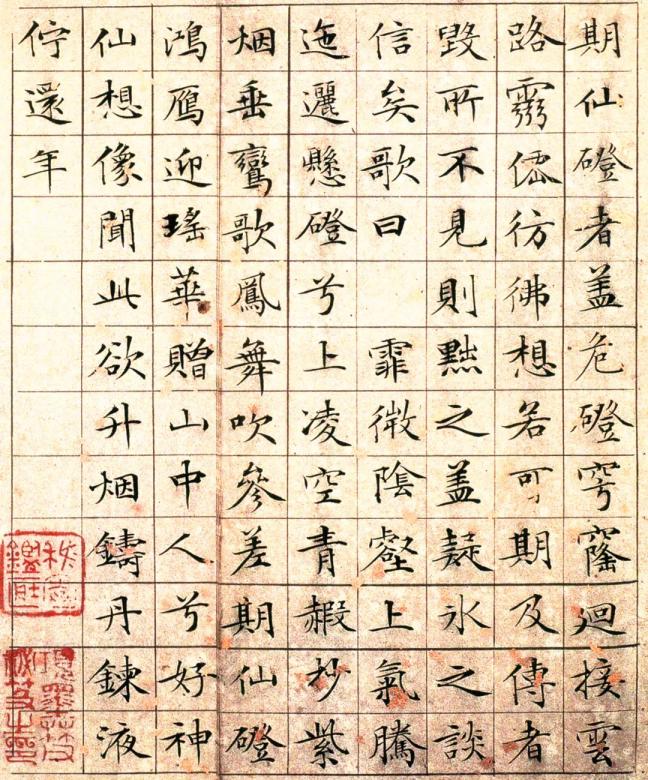 期仙磴者盖危磴穹窿迴接雲
路靈僊彷彿想若可期及傳者
毀所不見則黜之盖疑氷之談
信矣歌曰　霏微陰壑上氣騰
迤邐懸磴兮上凌空青赮杪紫
烟垂鸞歌鳳舞吹參差期仙磴
鴻鴈迎瑤華贈山中人兮好神
仙想像聞此欲升烟鑄丹鍊液
佇還年